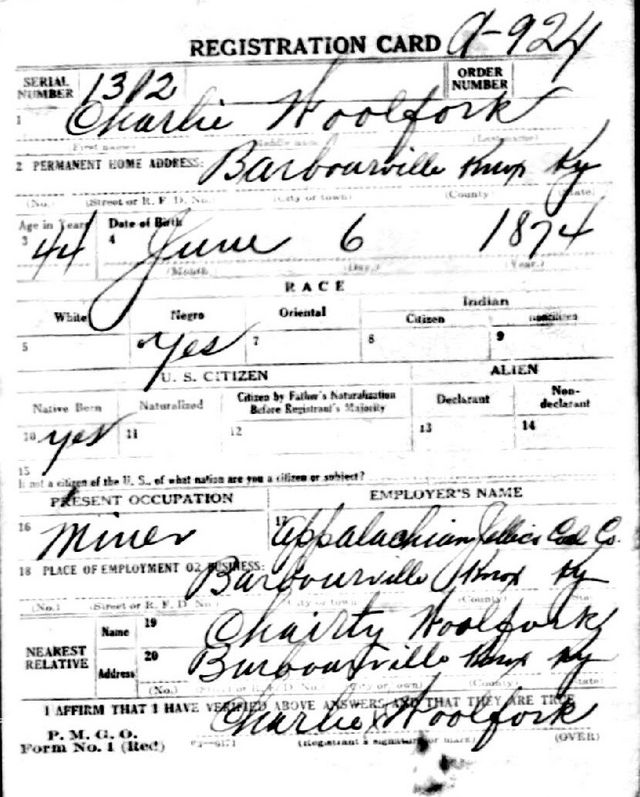 REGISTRATION CARD A-924
SERIAL NUMBER 1312 ORDER NUMBER
1 Charlie Woolfork
(First name) (Middle name) (Last name)
2 PERMANENT HOME ADDRESS: Barbourville Knox Ky
(No.) (Street or R. F. D. No.) (City or town) (County) (State)
Age in Years Date of Birth
3 44 4 June 6 1874
(Month.) (Day.) (Year.)
RACE
White Negro Oriental Indian
Citizen Noncitizen
5 Yes 7 8 9
U. S. CITIZEN ALIEN
Native Born Naturalized Citizen by Father's Naturalization Before Registrant's Majority Declarant Non-declarant
10 yes 11 12 13 14
15
If not a citizen of the U. S., of what nation are you a citizen or subject?
PRESENT OCCUPATION EMPLOYER'S NAME
16 Miner 17 Appalachian Jellico Coal Co.
18 PLACE OF EMPLOYMENT OR BUSINESS: Barbourville Knox Ky
(No.) (Street or R. F. D. No.) (City or town) (County) (State)
NEAREST RELATIVE Name 19 Chairty Woolfork
Address 20 Barbourville Knox Ky
(No.) (Street or R. F. D. No.) (City or town) (County) (State)
I AFFIRM THAT I HAVE VERIFIED ABOVE ANSWERS AND THAT THEY ARE TRUE
P. M. G. O.
Form No. 1 (Red) Charlie X Woolfork
(Registrant's signature or mark) (OVER)